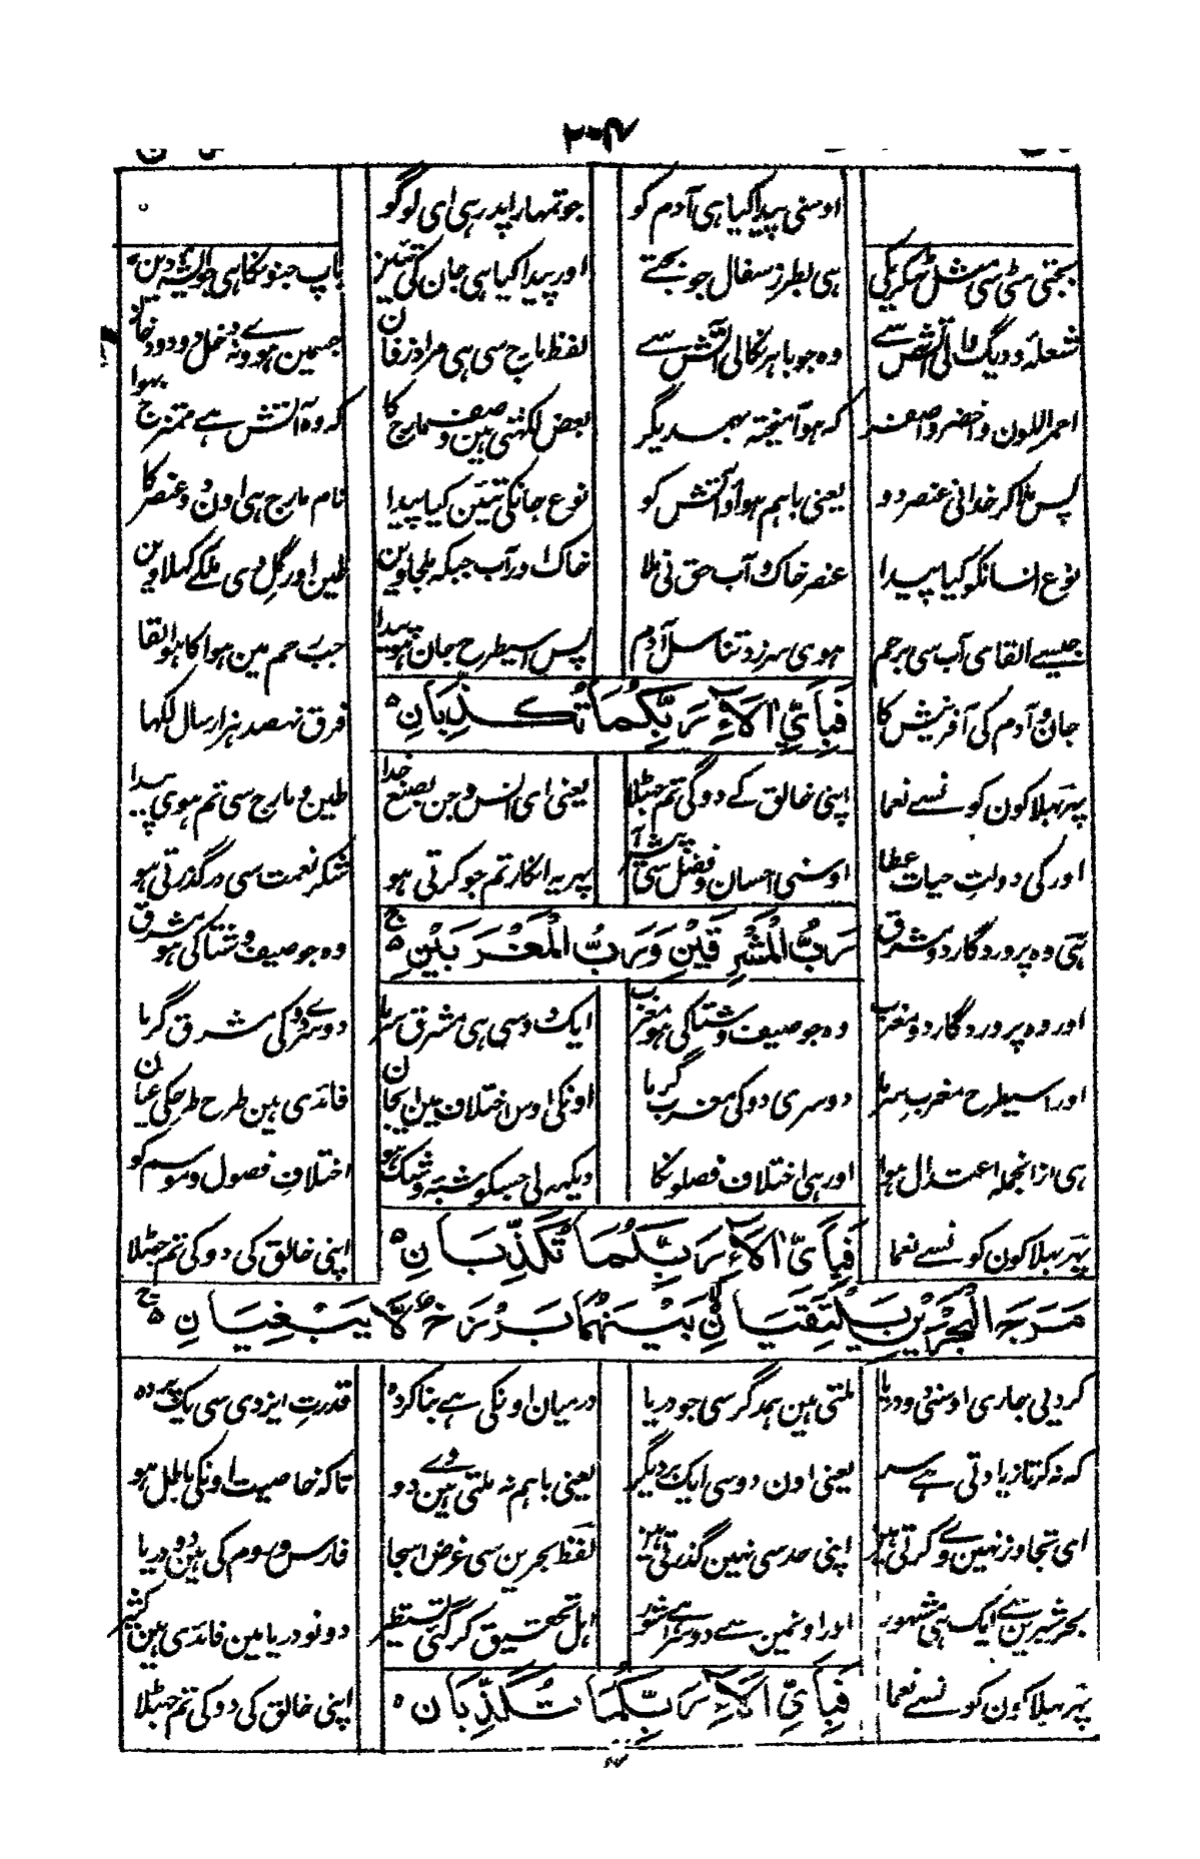 اوسنی پیدا کیا ہی آدم کو جو تمہارا پدر ہی ای لوگو
بجتی مٹی سی مثل ٹھیکریکی ہی بطرز سفال جو بجتے اور پیدا کیا ہی جان کی تئیں باپ جنونکا ہی جو
شعلۂ و دیگ والی آتش سے وہ جو باہر نکالی آتش سے لفظ مارج سی ہی مراد زفان جسمین ہووے نہ دخل دود
احمر اللون و اخضر و اصفر کہ ہو آمیختہ بہمدیگر بعض لکھتی ہین وصف مارج کا کہ وہ آتش ہے ممتزج بہوا
پس ملا کر خدانی عنصر دو یعنی باہم ہوا و آتش کو نوع جانکی تئین کیا پیدا نام مارج ہی اون دو عنصر کا
نوع انسانکو کیا پیدا عنصر خاک و آب حق نی ملا خاک اور آب جبکہ ملجاوین طین اور گل وسی ملکے کہلاوین
جیسے القاسی آب سی برحم ہوی سرزد تناسل آدم پس اسیطرح جان ہو پیدا جب رحم مین ہوا کا ہو القا
جان و آدم کی آفرینش کا فَبِأَيِّ آلَاءِ رَبِّكُمَا تُكَذِّبَانِ ہ فرق نہصد ہزار سال لکہا
پہر بہلا کون کونسے نعما اپنی خالق کے دو گی تم جہٹلا یعنی ای انس و جن بصنع خدا طین و مارج سی تم ہوی پیدا
اور کی دولتِ حیات عطا اوسنی احسان و فضل سی پیش آ پہر یہ انکار تم جو کرتی ہو شکر نعمت سی در گذرتی ہو
ہی وہ پروردگار دو مشرق رَبُّ الْمَشْرِقَيْنِ وَرَبُّ الْمَغْرِبَيْنِ ہ ج وہ جو صیف و شتا کی ہو مشرق
اور وہ پروردگار دو مغرب وہ جو صیف و شتا کی ہو مغرب ایک دوسی ہی مشرق سرما دوسرے دو کی مشرق گرما
اور اسیطرح مغرب سرما دوسری دو کی مغرب گرما اونکی اوس اختلاف مین ایجان فائدی ہین طرح طرحکی عیان
ہی ازانجملہ اعتدال ہوا اور ہی اختلاف فصلونکا دیکہہ لی جسکو شبہ و شک ہو اختلافِ فصول و موسم کو
پہر بہلا کون کونسے نعما فَبِأَيِّ آلَاءِ رَبِّكُمَا تُكَذِّبَانِ ہ اپنی خالق کی دو کی تم جہٹلا
مَرَجَ الْبَحْرَيْنِ يَلْتَقِيَانِ بَيْنَهُمَا بَرْزَخٌ لَّا يَبْغِيَانِ ہ ج
کردیی جاری اوسنی دو دریا ملتی ہین ہمدگر سی جو دریا درمیان اونکی ہے بنا کردہ قدرتِ ایزدی سی یک پردہ
کہ نہ کرتا زیادتی ہے یعنی اون دوسی ایک بر دیگر یعنی باہم نہ ملتی ہین وے دو تاکہ خاصیت اونکی باطل ہو
ای تجاوز نہین وے کرتی ہین اپنی حدسی نہین گذرتی ہین لفظ بحرین سی غرض اسجا فارس و روم کی ہین دو دریا
بحر شیرین ہے ایک ہی مشہور اور اونمین سے دوسرا ہے شور اہل تحقیق کر گئی دونو دریا مین فائدی ہین کثیر
پہر بہلا کون کونسے نعما فَبِأَيِّ آلَاءِ رَبِّكُمَا تُكَذِّبَانِ ہ اپنی خالق کی دو کی تم جہٹلا